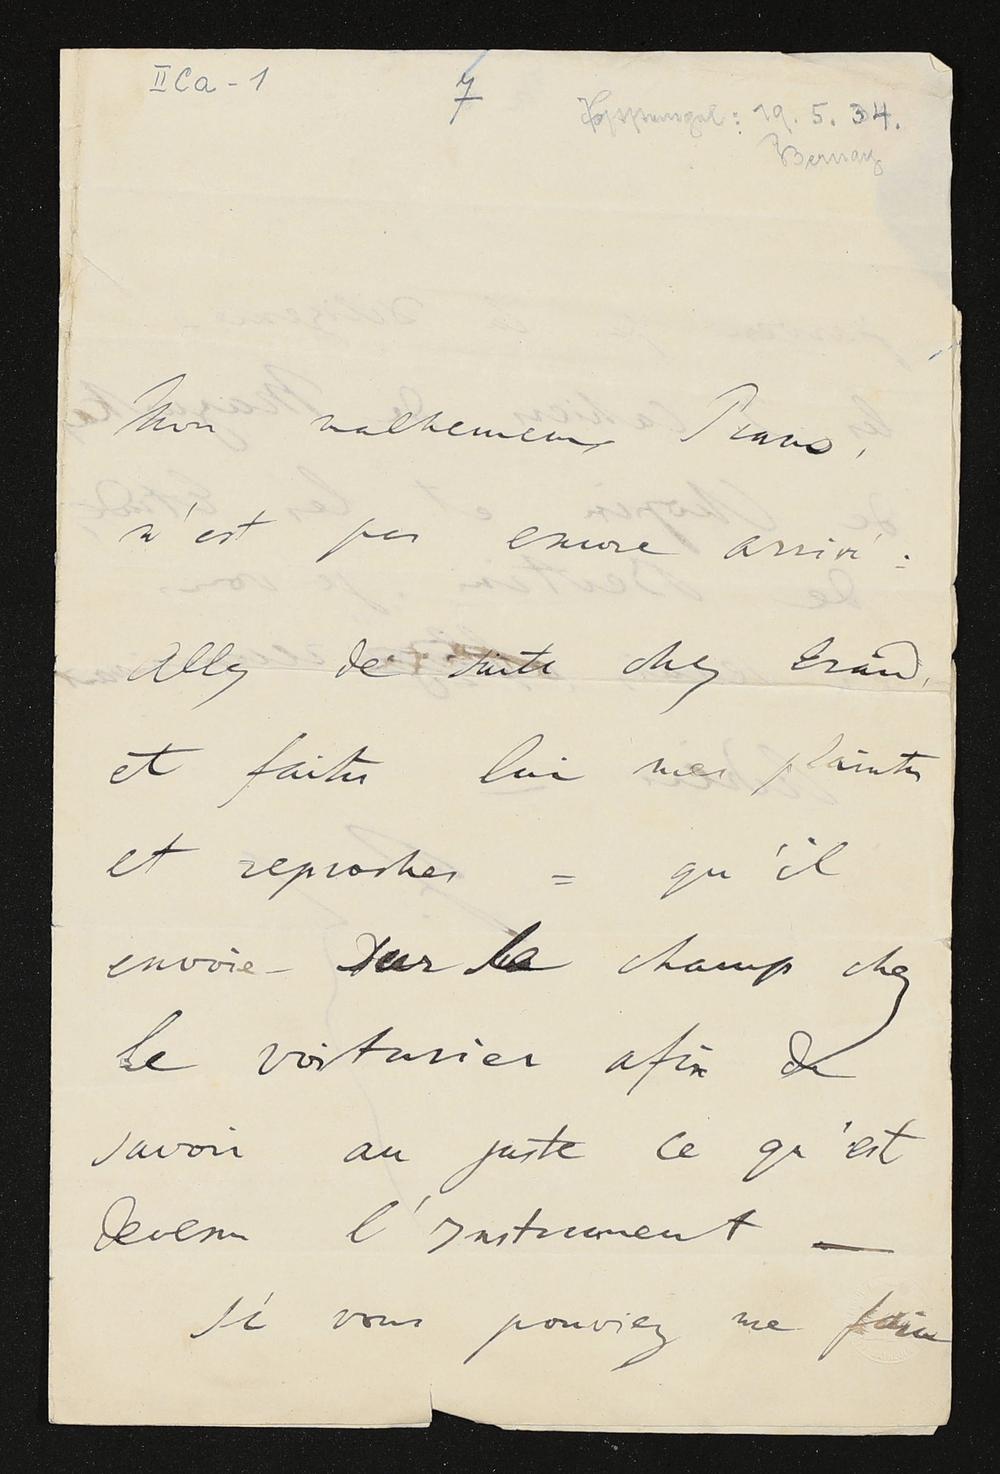 II Ca - 1
7
19. 5. 34.
Bernay
Mon malheureux Piano,
n'est pas encore arrivé :
Allez de suite chez Erard,
et faites lui mes plaintes
et reproches = qu'il
envoie - sur le champ chez
le voiturier afin de
savoir au juste ce qu'est
devenu l'Instrument —
Si vous pouviez me faire